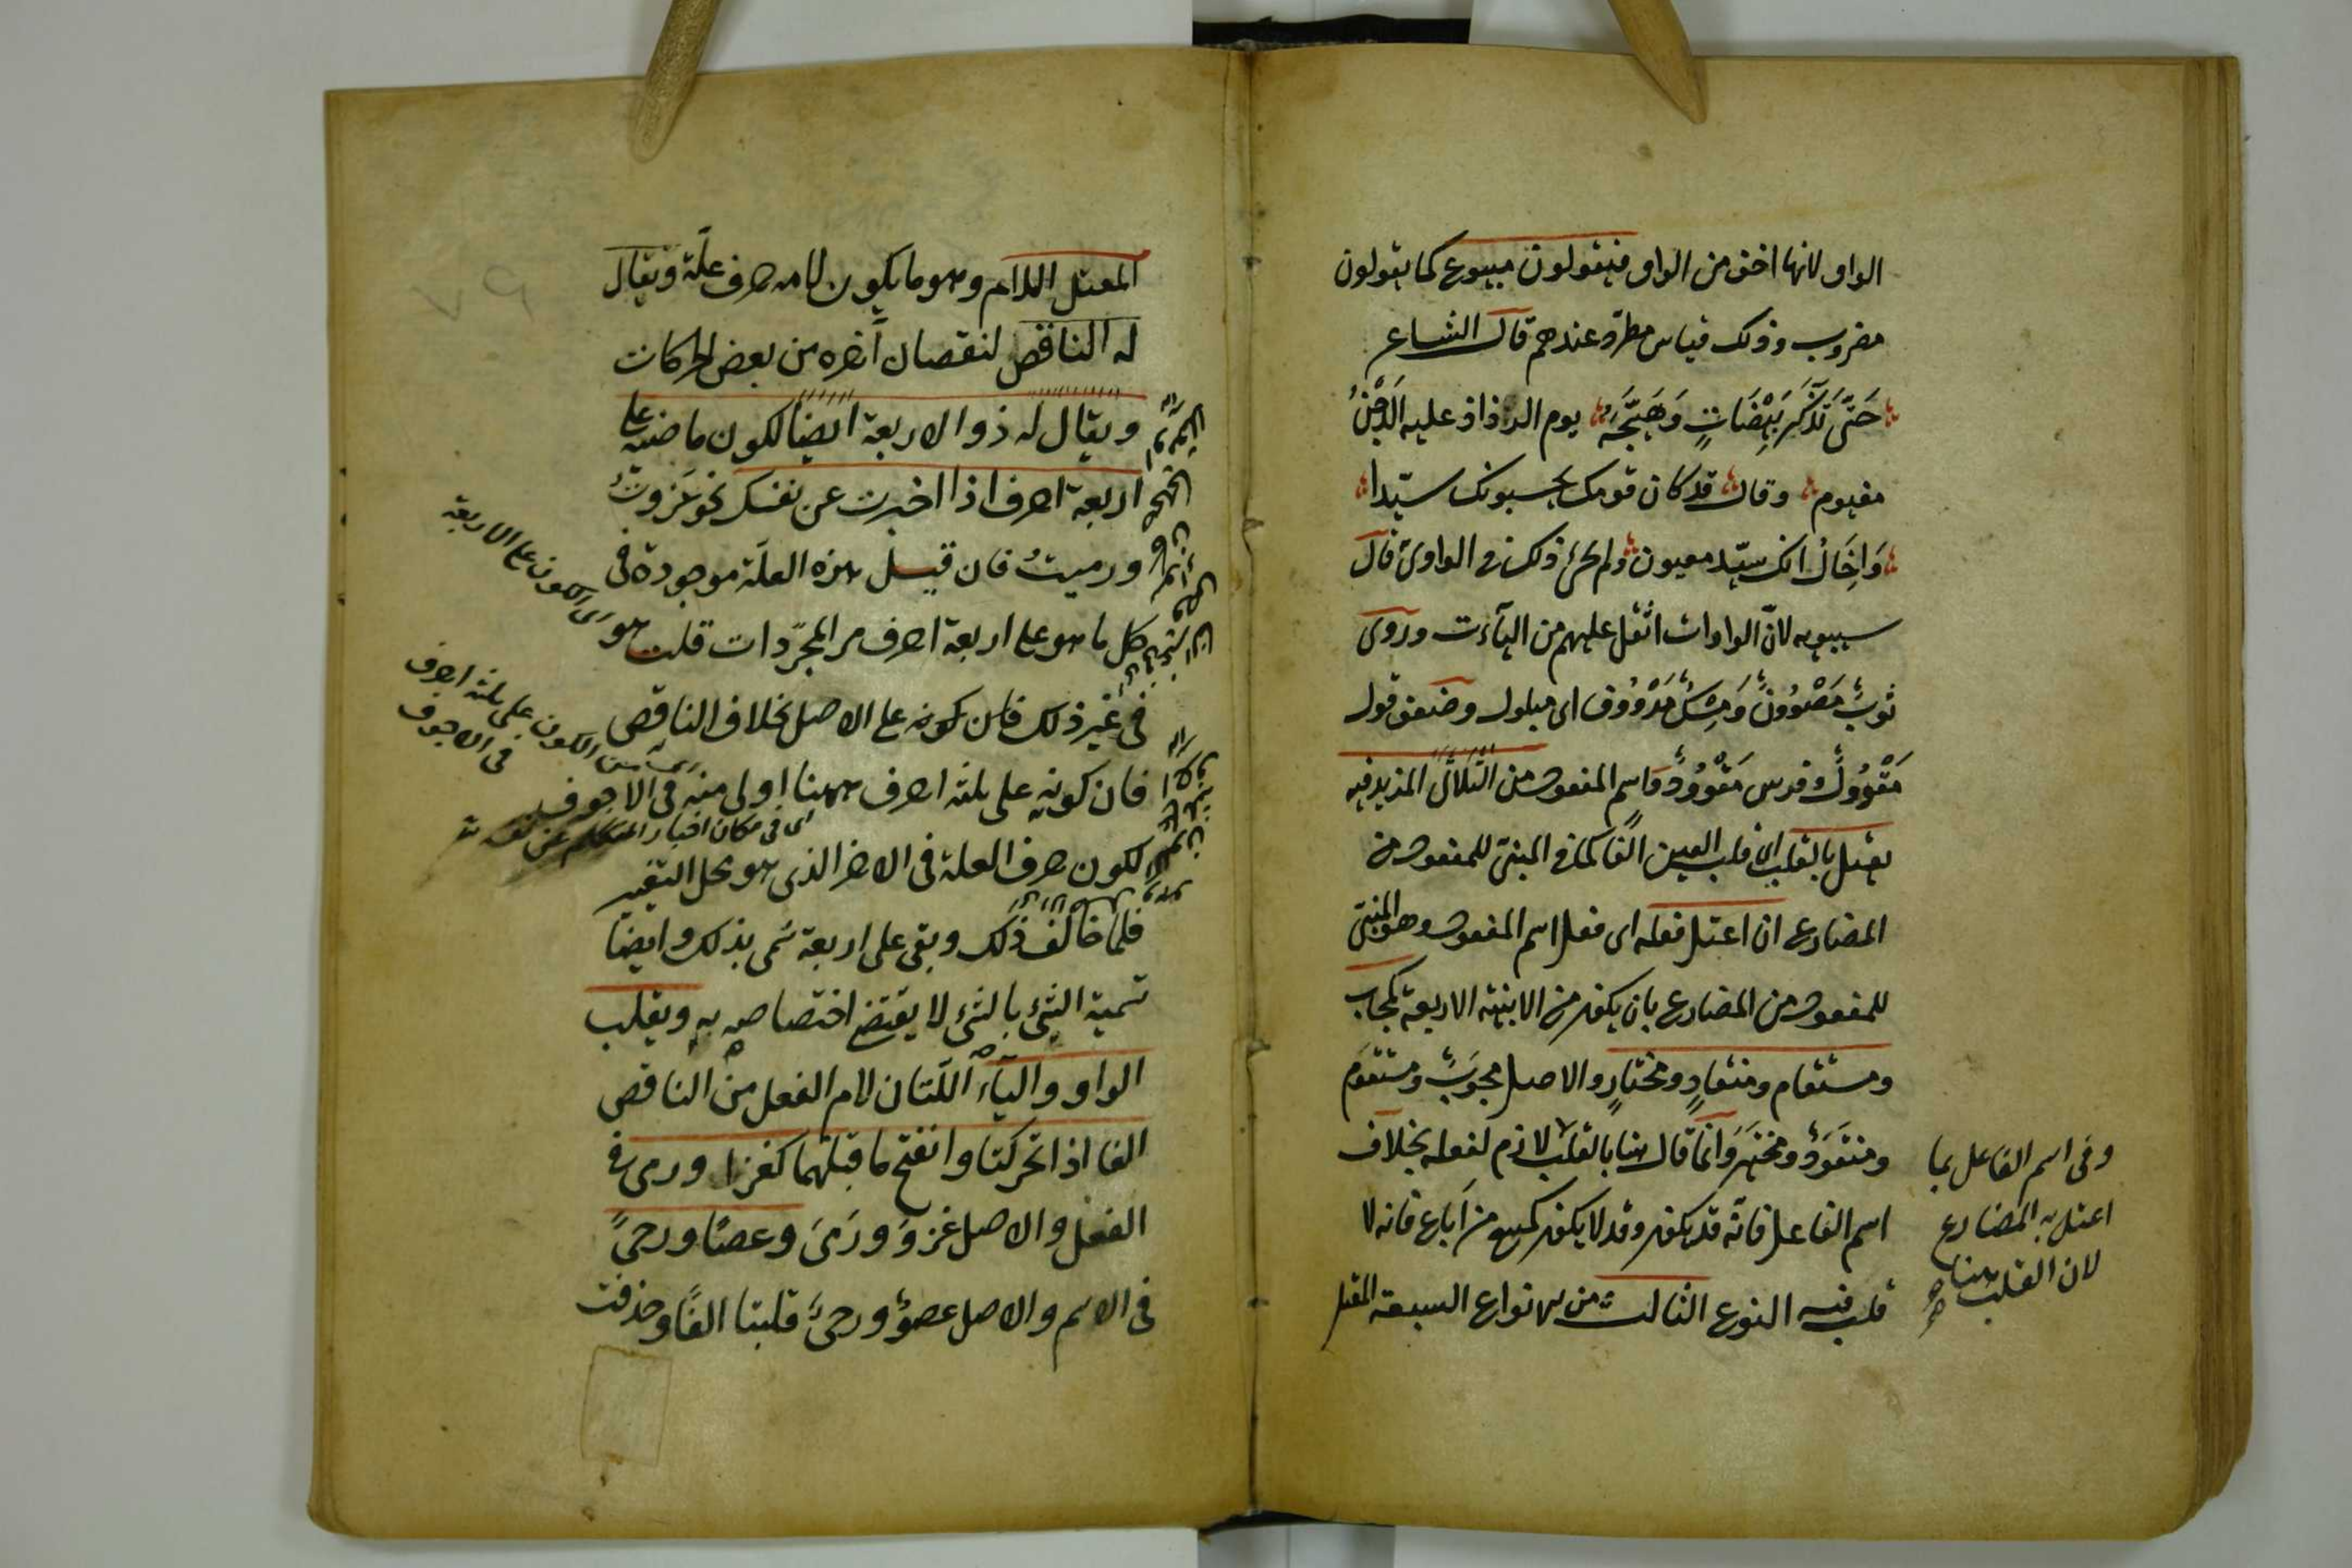 الواو لانها اخف من الواو فيقولون مبيوع كما يقولون
مضروب وذلك قياس مطرد عندهم قال الشاعر
حَتَّى تَذَكَّرَ بَيْضَاتٍ وَهَيَّجَهُ يوم الرذاذ عليه الدَجْنُ
مغيوم وقال قد كان قومك يحسبونك سيّدا
وَاِخَالُ انك سيّد معيون ولم يجئ ذلك فى الواوىّ قال
سيبويه لانّ الواوات اثقل عليهم من اليآءت وروى
ثوبٌ مَصْوُونٌ وَمِسْكٌ مَدْوُوف اى مبلول وضعف قول
مَقْوُولٌ وفرس مَقْوُودٌ واسم المفعول من الثلاثى المزيد فيه
يعتل بالقلب اى قلب العين الفا كما فى المبنىّ للمفعول من
المضارع ان اعتل فعله اى فعل اسم المفعول وهو المبنىّ
للمفعول من المضارع بان يكون من الابنية الاربعة كمجاب
ومستقام ومنقادٍ ومختارٍ والاصل مجوَبٌ ومستقوَم
ومنقَوَدٌ ومختيَر وانما قال هنا بالقلب لازم لفعله بخلاف
اسم الفاعل فانّه قد يكون وقد لا يكون كمبيع من اَباع فانه لا
قلب فيه النوع الثالث من الانواع السبعة المعتل
وفى اسم الفاعل بما
اعتل به المضارع
لان القلب هنا
المعتل اللام وهو ما يكون لامه حرف علّة ويقال
له الناقص لنقصان آخره من بعض الحركات
ويقال له ذو الاربعة ايضا لكون ماضيه على
اربعة احرف اذا اخبرت عن نفسك نحو غزوتُ
ورميتُ فان قيل هذه العلّة موجودة فى
كل ما هو على اربعة احرف من المجرّدات قلت هو
فى غير ذلك فان كونه على الاصل بخلاف الناقص
فان كونه على ثلثة احرف ههنا اولى منه فى الاجوف
لكون حرف العلة فى الاخر الذى هو محل التغيير
فلما خالف ذلك وبقى على اربعة سُمى بذلك وايضا
تسمية الشئ بالشئ لا يقتضى اختصاصه به ويقلب
الواو واليآء اللّتان لام الفعل من الناقص
الفا اذا تحركتا وانفتح ما قبلهما كغزا ورمى فى
الفعل والاصل غزوَ ورَمىَ وعصًا ورحىً
فى الاسم والاصل عصوٌ ورحىٌ قلبتا الفًا وحذفت
اى الكون على الاربعة
اى من الكون على ثلثة احرف
فى الاجوف
اى فى مكان اخبار المتكلم عن نفسه
٧٩